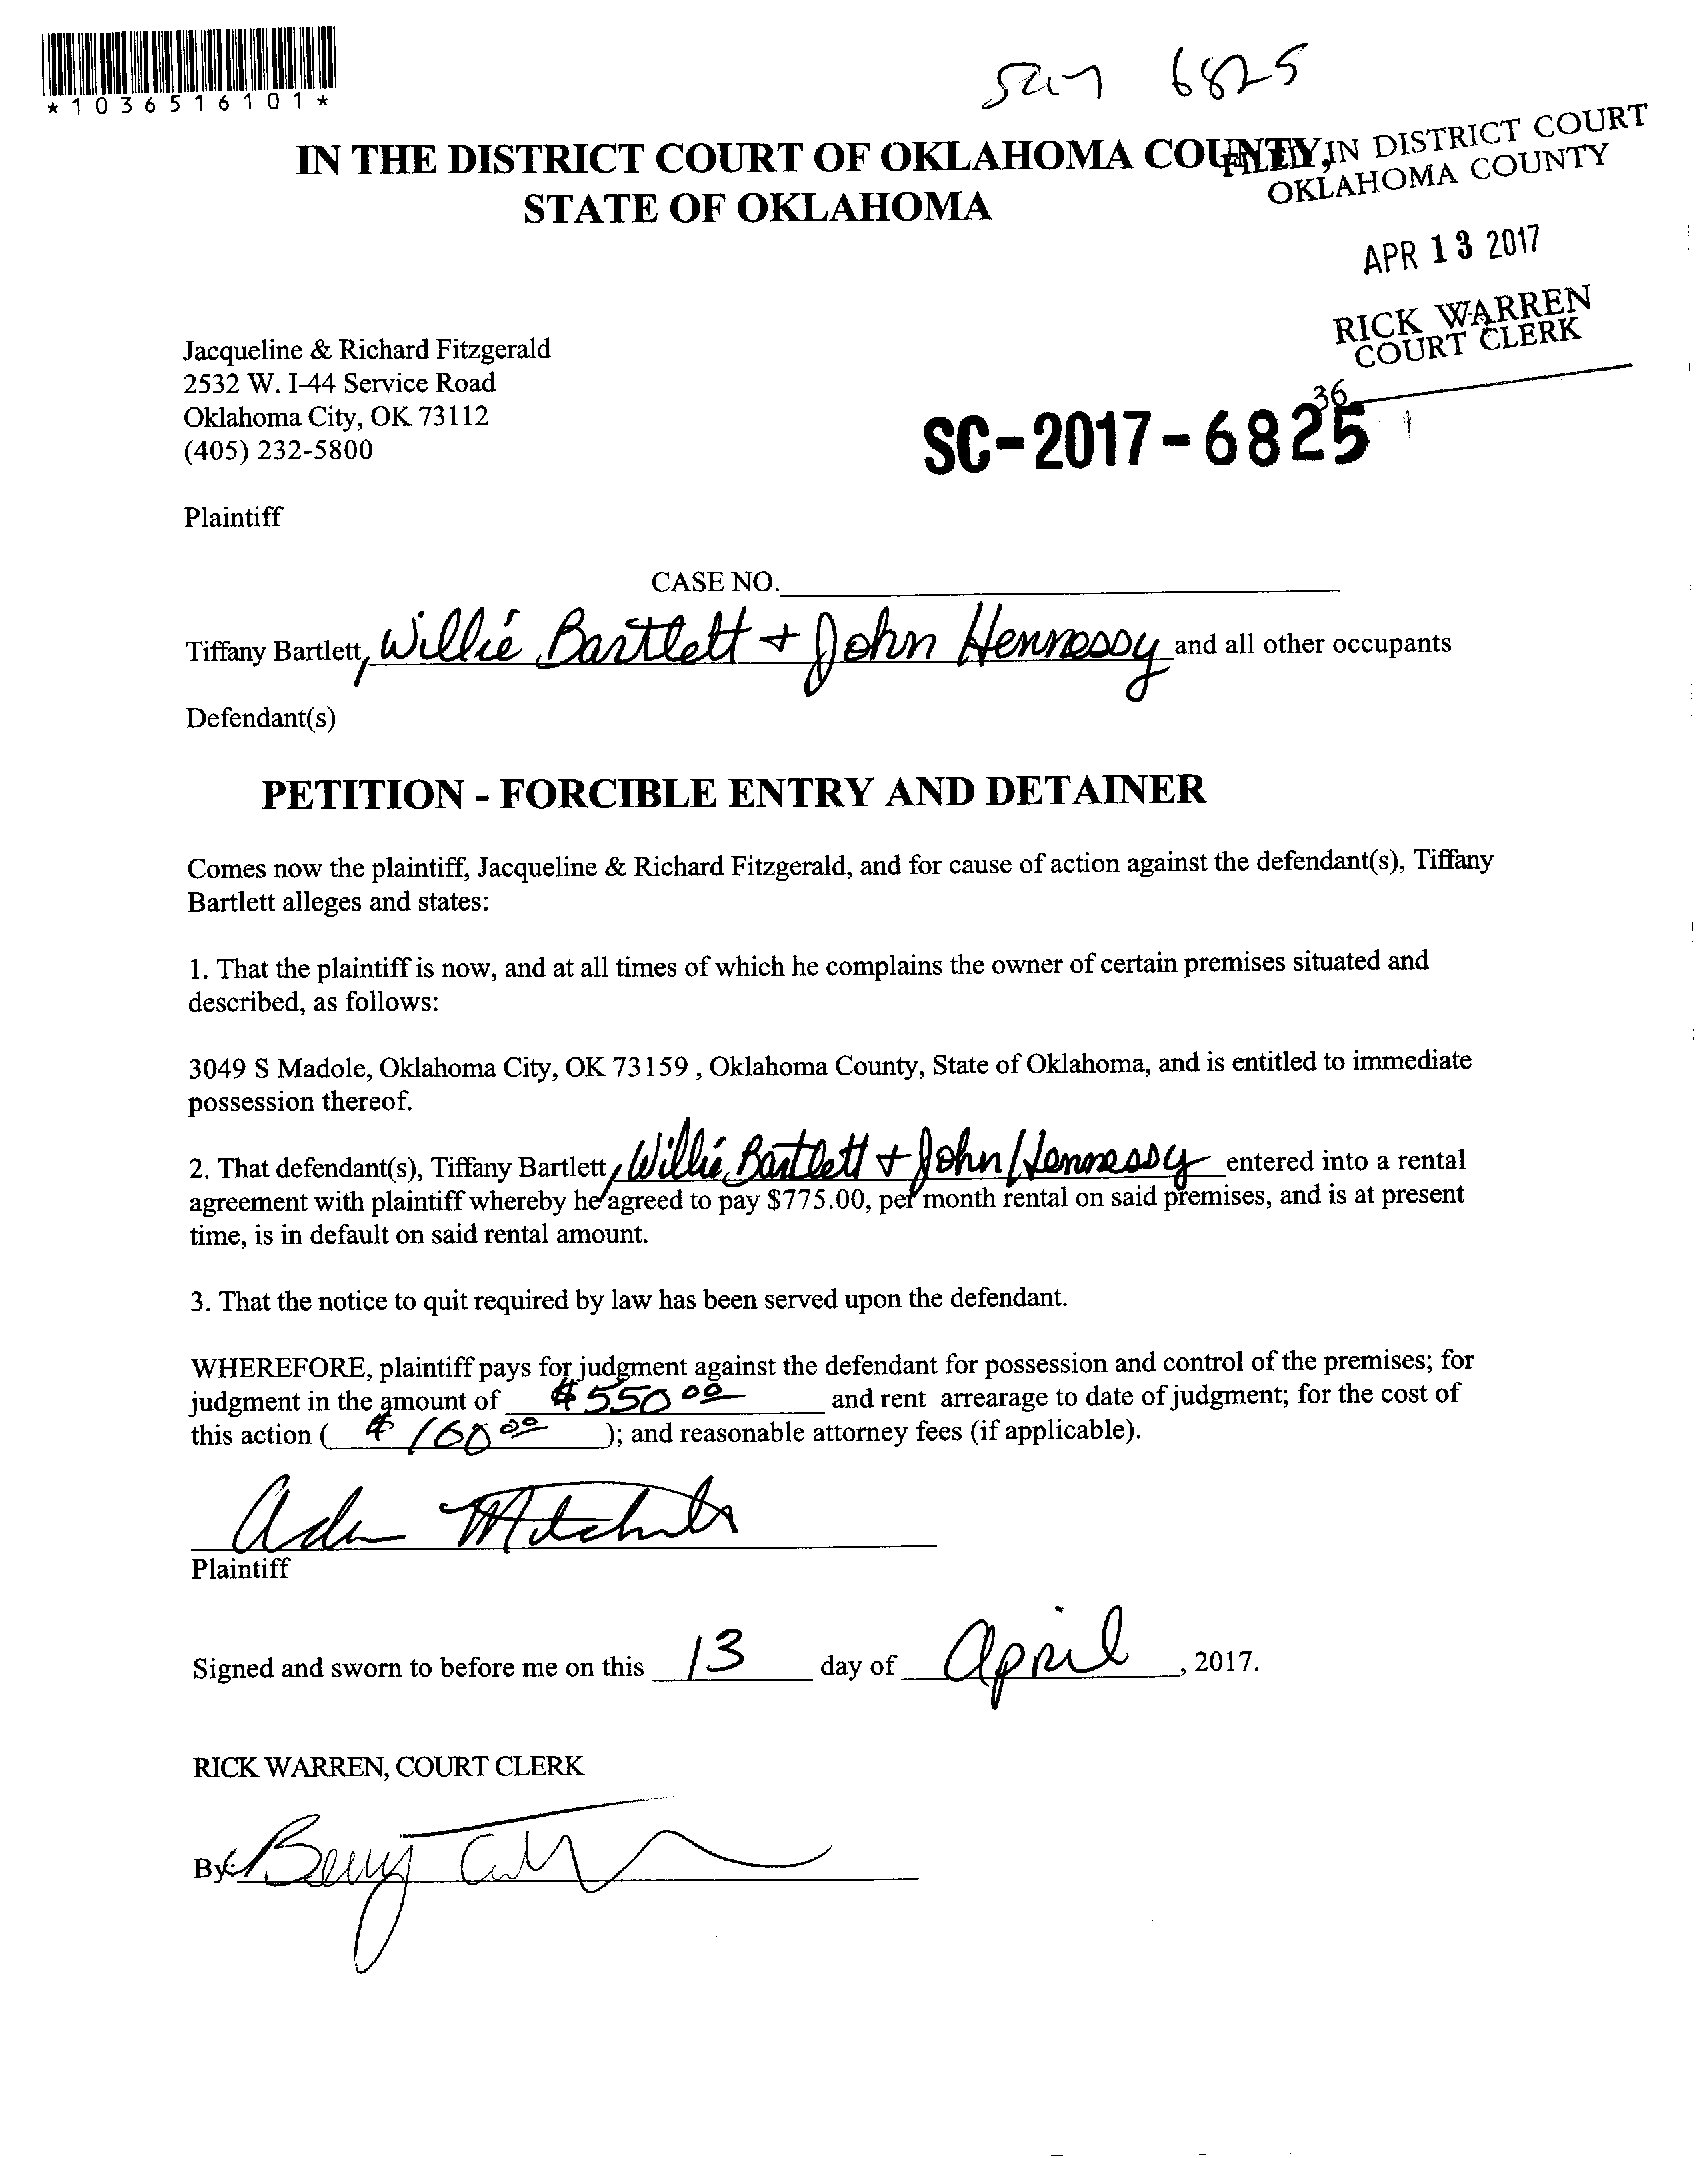 *1036516101*
6825
IN THE DISTRICT COURT OF OKLAHOMA COUNTY,
STATE OF OKLAHOMA
FILED IN DISTRICT COURT
OKLAHOMA COUNTY
APR 13 2017
RICK WARREN
COURT CLERK
36
SC-2017-6825
Jacqueline & Richard Fitzgerald
2532 W. I-44 Service Road
Oklahoma City, OK 73112
(405) 232-5800
Plaintiff
CASE NO.
Tiffany Bartlett, Willie Bartlett + John Hennessy and all other occupants
Defendant(s)
PETITION - FORCIBLE ENTRY AND DETAINER
Comes now the plaintiff, Jacqueline & Richard Fitzgerald, and for cause of action against the defendant(s), Tiffany
Bartlett alleges and states:
1. That the plaintiff is now, and at all times of which he complains the owner of certain premises situated and
described, as follows:
3049 S Madole, Oklahoma City, OK 73159 , Oklahoma County, State of Oklahoma, and is entitled to immediate
possession thereof.
2. That defendant(s), Tiffany Bartlett, Willie Bartlett + John Hennessy entered into a rental
agreement with plaintiff whereby he agreed to pay $775.00, per month rental on said premises, and is at present
time, is in default on said rental amount.
3. That the notice to quit required by law has been served upon the defendant.
WHEREFORE, plaintiff pays for judgment against the defendant for possession and control of the premises; for
judgment in the amount of $550 00 and rent arrearage to date of judgment; for the cost of
this action ( $160 00 ); and reasonable attorney fees (if applicable).
Plaintiff
Signed and sworn to before me on this 13 day of April, 2017.
RICK WARREN, COURT CLERK
By: